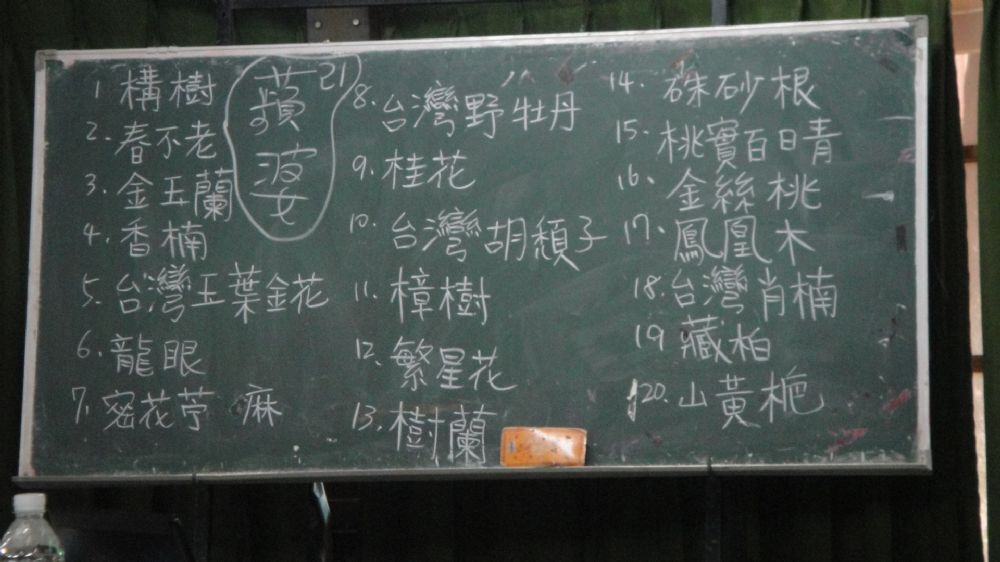 1 構樹
2. 春不老
3. 金玉蘭
4. 香楠
5. 台灣玉葉金花
6. 龍眼
7. 密花苧麻
21 蘋婆
8. 台灣野牡丹
9. 桂花
10. 台灣胡頹子
11. 樟樹
12. 繁星花
13. 樹蘭
14. 硃砂根
15. 桃實百日青
16. 金絲桃
17. 鳳凰木
18. 台灣肖楠
19 藏柏
20. 山黃梔